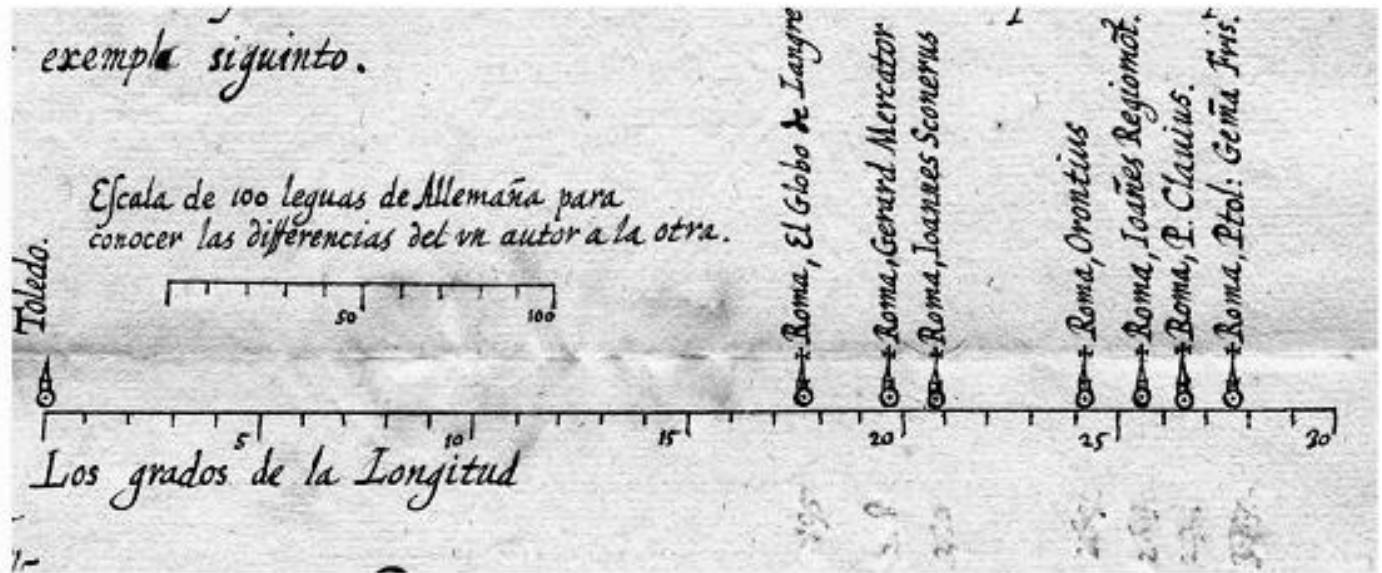 exemplo siguinto.
Escala de 100 leguas de Allemaña para
conocer las differencias del vn autor a la otra.
50 100
Toledo.
Roma, El Globo de Langre
Roma, Gerard Mercator
Roma, Ioannes Sconerus
Roma, Orontius
Roma, Ioañes Regiomōt.
Roma, P. Clauius.
Roma, Ptol: Gem̄a Fris.
5 10 15 20 25 30
Los grados de la Longitud